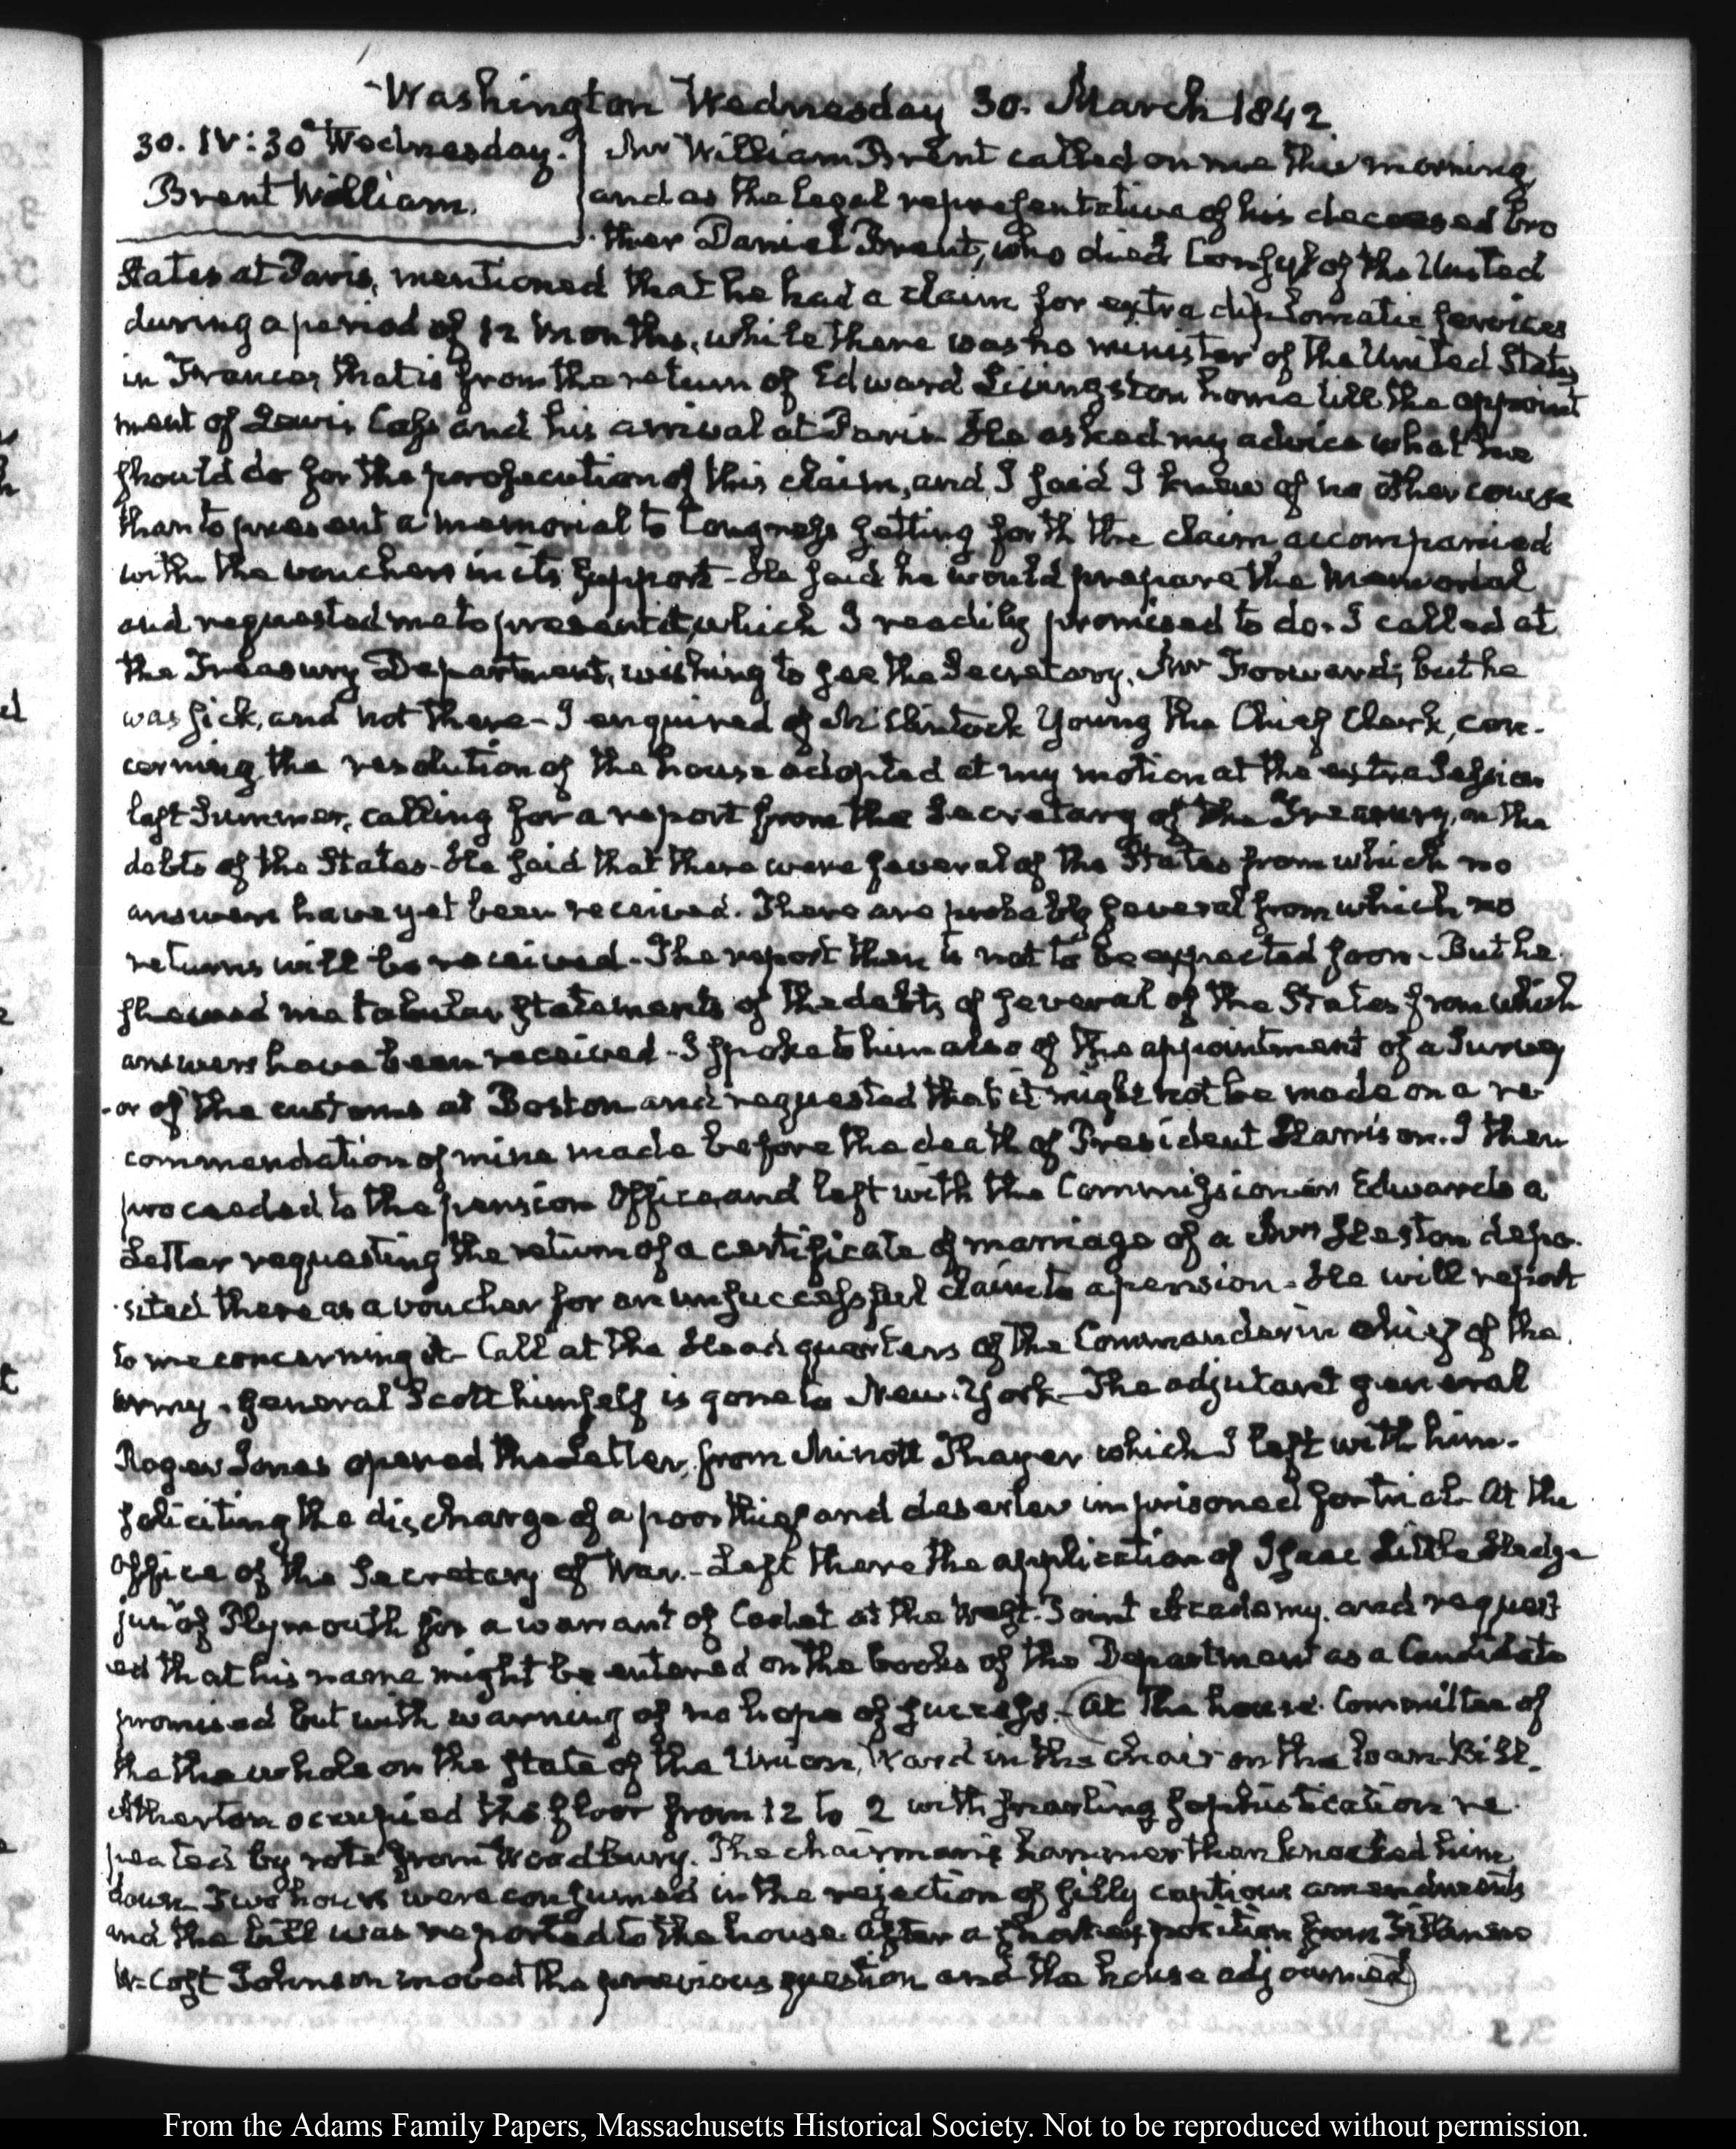 Washington Wednesday 30. March 1842.
30. IV:30 Wednesday.
Brent William.
Mr William Brent called on me this morning
and as the legal representative of his deceased bro
ther Daniel Brent, who died Consul of the United
States at Paris, mentioned that he had a claim for extra diplomatic services
during a period of 12 months, while there was no minister of the United States
in France, that is from the return of Edward Livingston home till the appoint
ment of Lewis Cass and his arrival at Paris. He asked my advice what he
should do for the prosecution of this claim, and I said I knew of no other course
than to present a memorial to Congress setting forth the claim, accompanied
with the vouchers in its support - He said he would prepare the memorial
and requested me to present it, which I readily promised to do. I called at
the Treasury Department, wishing to see the Secretary, Mr Forward; but he
was sick, and not there - I enquired of McClintock Young the Chief Clerk, con-
cerning the resolution of the house adopted at my motion at the extra Session
last Summer, calling for a report from the Secretary of the Treasury, on the
debts of the States - He said that there were several of the States from which no
answers have yet been received. There are probably several from which no
returns will be received - The report then is not to be expected soon - But he
shewed me tabular statements of the debts of several of the States from which
answers have been received - I spoke to him also of the appointment of a Survey
-or of the customs at Boston and requested that it might not be made on a re
commendation of mine made before the death of President Harrison. I then
proceeded to the pension Office, and left with the Commissioner Edwards a
Letter requesting the return of a certificate of marriage of a Mrs Heston depo-
sited there as a voucher for an unsuccessful claim to a pension - He will report
to me concerning it - Call at the Head quarters of the Commander in chief of the
army - General Scott himself is gone to New-York - The adjutant general
Roger Jones opened the Letter, from Minott Thayer which I left with him.
soliciting the discharge of a poor thief and deserter imprisoned for trial - At the
office of the Secretary of War. - Left there the application of Isaac Little Hedge
junr of Plymouth for a warrant of Cadet at the West-Point Academy, and request
ed that his name might be entered on the books of the Department as a Candidate
promised but with warning of no hope of success. - (At the house. Committee of
the the whole on the state of the Union, Ward in the chair on the loan-Bill.
Atherton occupied the floor from 12 to 2 with snarling sophistication re
peated by rote from Woodbury. The chairman's hammer then knocked him
down. Two hours were consumed in the rejection of silly captious amendments
and the bill was reported to the house. After a short exposition from Fillmore
W. Cost Johnson moved the previous question and the house adjourned)
From the Adams Family Papers, Massachusetts Historical Society. Not to be reproduced without permission.